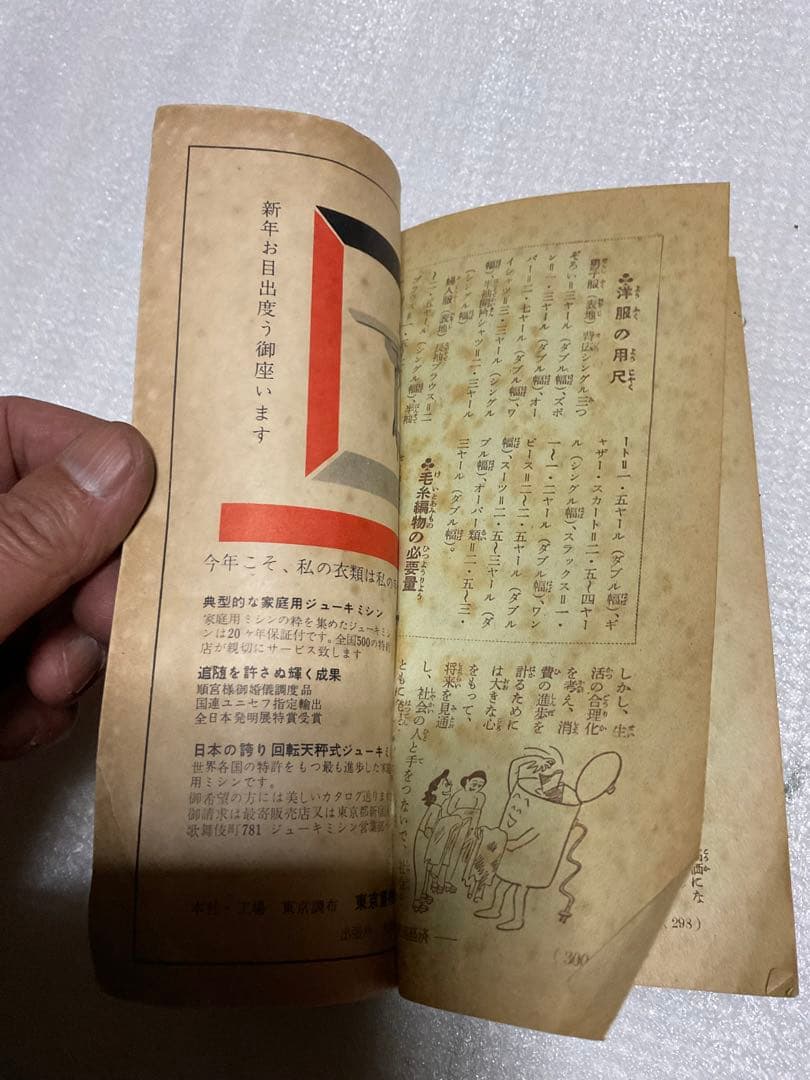 新年お目出度う御座います
今年こそ、私の衣類は私の
典型的な家庭用ジューキミシン
家庭用ミシンの粋を集めたジューキミシ
ンは20ヶ年保証付です。全国500の特約
店が親切にサービス致します
追随を許さぬ輝く成果
順宮様御婚儀調度品
国連ユニセフ指定輸出
全日本発明展特賞受賞
日本の誇り回転天秤式ジューキミシ
世界各国の特許をもつ最も進歩した家庭
用ミシンです。
御希望の方には美しいカタログ送ります
御請求は最寄販売店又は東京都新宿区
歌舞伎町781 ジューキミシン営業部
本社・工場 東京調布 東京重機
洋服の用尺
男子服(表地)背広シングル三つ
ぞろい=三ヤール(ダブル幅)、ズボ
ン=一・三ヤール(ダブル幅)、オー
バー=二・七ヤール(ダブル幅)、ワ
イシャツ=三・三ヤール(シングル
幅)、半袖開衿シャツ=二・三ヤール
(シングル幅)
婦人服(表地)長袖ブラウス=二
〜二・五ヤール(シングル幅)、半袖
ート=一・五ヤール(ダブル幅)、ギ
ャザー・スカート=二・五〜四ヤー
ル(シングル幅)、スラックス=一・
一〜一・二ヤール(ダブル幅)、ワン
ピース=二〜二・五ヤール(ダブル
幅)、スーツ=二・五〜三ヤール(ダ
ブル幅)、オーバー類=二・五〜三・
三ヤール(ダブル幅)。
毛糸編物の必要量
しかし、生
活の合理化
を考え、消
費の進歩を
計るために
は大きな心
をもって、
将来を見通
し、社会の人と手をつないで、
ともに発
経済
(300
(298)